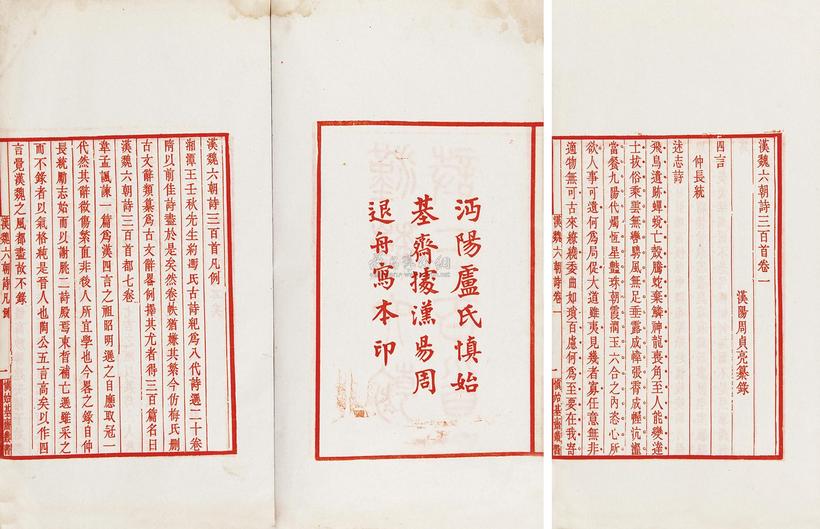 漢魏六朝詩三百首卷一
漢陽周貞亮纂錄
四言
仲長統
述志詩
飛鳥遺跡蟬蛻亡殼騰蛇棄鱗神龍喪角至人能變達
士拔俗乘雲無轡騁風無足垂露成幃張霄成幄沆瀣
當餐九陽代燭恆星豔珠朝霞潤玉六合之內恣心所
欲人事可遺何爲局促大道雖夷見幾者寡任意無非
適物無可古來繚繞委曲如瑣百慮何爲至要在我寄
漢魏六朝詩 卷一
一
慎始基齋叢書
沔陽盧氏慎始
基齋據漢昜周
退舟寫本印
漢魏六朝詩三百首凡例
湘潭王壬秋先生約馮氏古詩紀爲八代詩選二十卷
隋以前佳詩盡於是矣然卷帙猶嫌其繁今仿梅氏刪
古文辭類纂爲古文辭畧例擇其尤者得三百篇名曰
漢魏六朝詩三百首都七卷
韋孟諷諫一篇爲漢四言之祖昭明選之自應取冠一
代然其辭微傷繁直非後人所宜學也今畧之錄自仲
長統勵志始而以謝朓二詩殿焉束晳補亡選雖采之
而不錄者以氣格純是晉人也陶公五言高矣以作四
言覺漢魏之風都盡故不錄
漢魏六朝詩 凡例
一
慎始基齋叢書